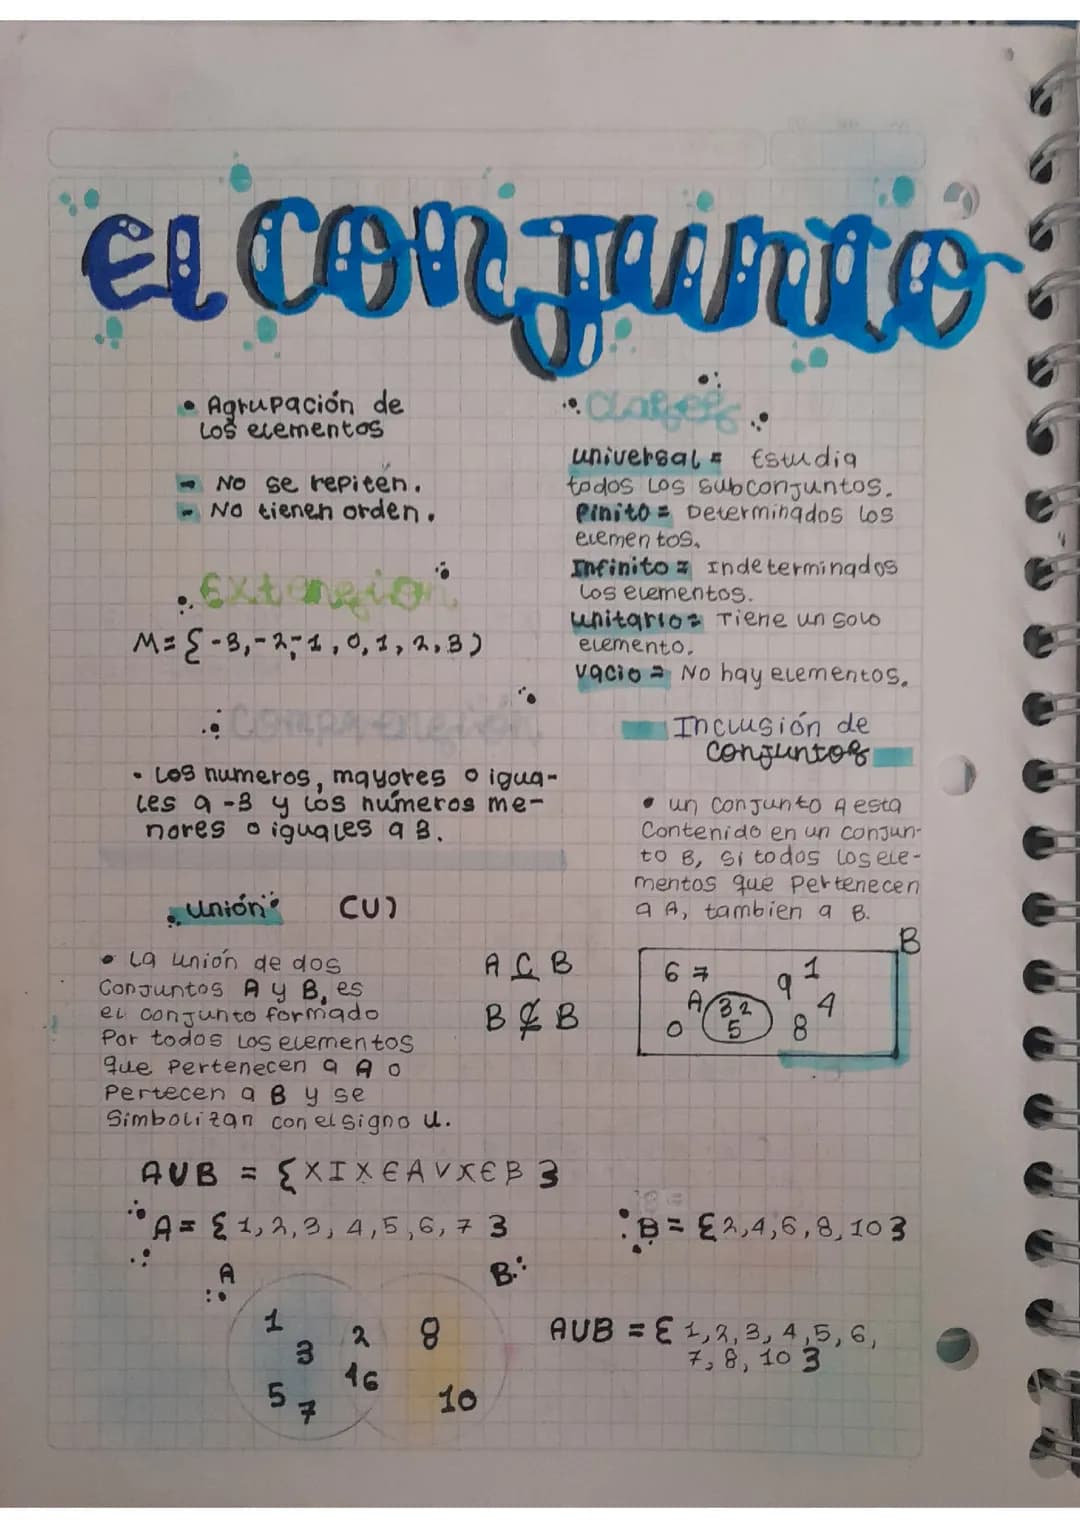 El Conjunto
• Agrupación de
los elementos
- No se repiten.
- No tienen orden.
Extension
M= {-3,-2,-1,0,1,2,3)
Comprensión
• Los numeros, mayores o igua-
les a -3 y los números me-
nores o iguales a 3.
Clases
universal = Estudia
todos los subconjuntos.
Finito = Determinados los
elementos.
Infinito = Indeterminados
los elementos.
unitario = Tiene un solo
elemento.
vacio = No hay elementos.
Inclusión de
conjuntos
• un conjunto A esta
contenido en un conjun-
to B, si todos los ele-
mentos que pertenecen
a A, tambien a B.
Unión (U)
• La unión de dos
conjuntos A y B, es
el conjunto formado
por todos los elementos
que pertenecen a A o
pertecen a B y se
simbolizan con el signo U.
A ⊆ B
B ⊈ B
B
6 7 9 1
A 3 2 4
0 5 8
AUB = {XIXEAVXEB}
A = {1,2,3,4,5,6,7}
B = {2,4,6,8,10}
A B
1 2 8
3
5 46 10
7
AUB = {1,2,3,4,5,6,
7,8,10}